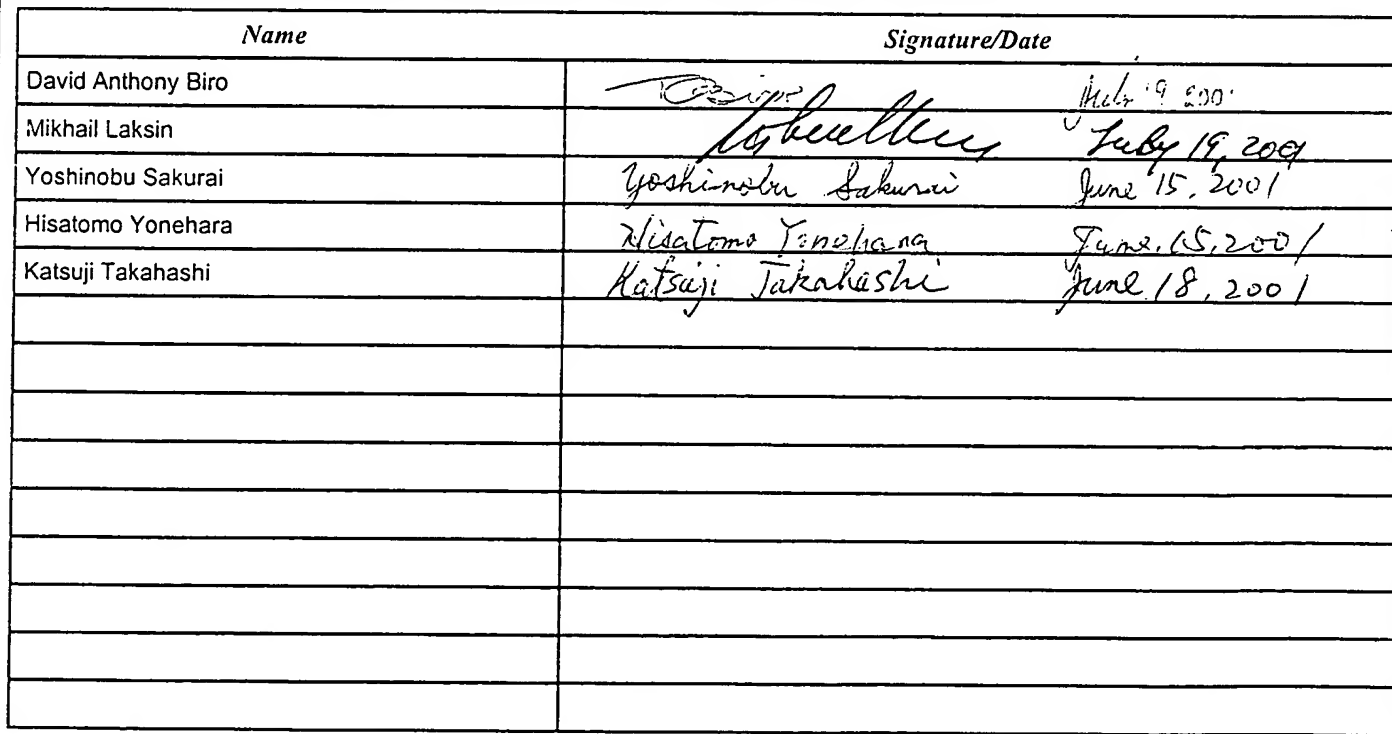 Name Signature/Date
David Anthony Biro July 19 2001
Mikhail Laksin July 19, 2001
Yoshinobu Sakurai Yoshinobu Sakurai June 15, 2001
Hisatomo Yonehara Hisatomo Yonehara June, 15, 2001
Katsuji Takahashi Katsuji Takahashi June 18, 2001